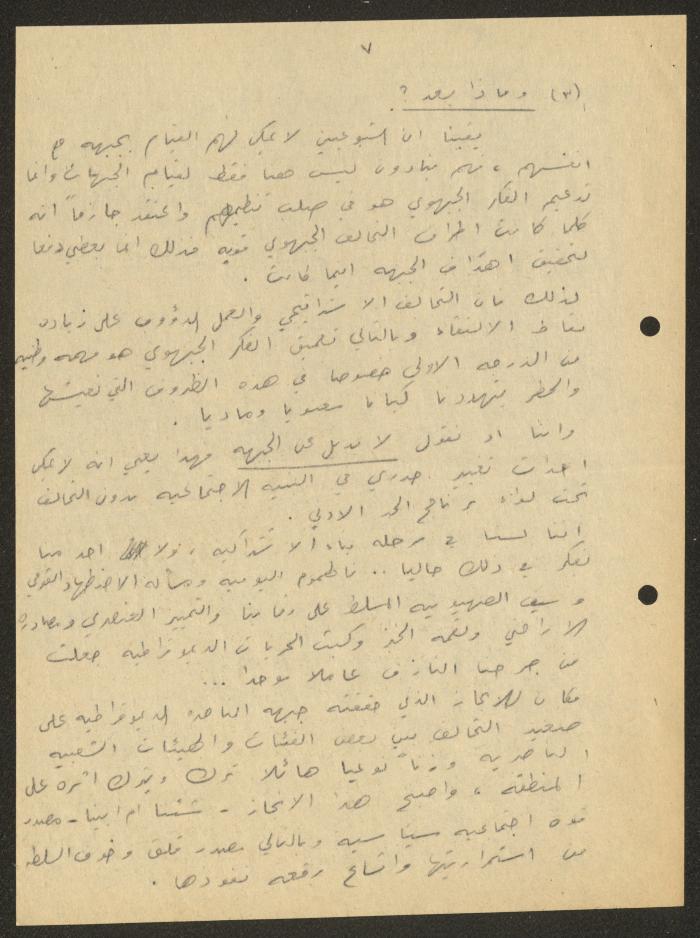 ٧
(٣) وماذا بعد ؟
يقينا ان الشيوعيين لا يمكن لهم القيام بجبهه مع
انفسهم ، فهم ينادون ليس هنا فقط لقيام الجبهات وانما
تدعيم الفكر الجبهوي هو في صلب تنظيمهم واعتقد جازماً انه
كلما كانت اطراف التحالف الجبهوي قويه فذلك انما يعطي دفعا
لتحقيق اهداف الجبهه ايما كانت .
لذلك فان التحالف الاستراتيجي والعمل الدؤوب على زياده
نقاط الالتقاء وبالتالي تعميق الفكر الجبهوي هو مهمه وطنيه
من الدرجه الاولى خصوصا في هذه الظروف التي نعيشها
والخطر يتهددنا كيانا معنويا وماديا .
واننا اذ نقول لا بديل عن الجبهه فهذا يعني انه لا يمكن
احداث تغيير جذري في البنيه الاجتماعيه بدون التحالف
تحت لواء برنامج الحد الادنى .
اننا لسنا في مرحله بناء الاشتراكيه ، ولا احد منا
يفكر في ذلك حاليا .. فالهموم اليوميه ومسأله الاضطهاد القومي
وسيف الصهيونيه المسلط على رقابنا والتمييز العنصري ومصادره
الاراضي ولقمه الخبز وكبت الحريات الديموقراطيه جعلت
من جرحنا النازف عاملا موحدا ...
فكان للانجاز الذي حققته جبهه الناصره الديموقراطيه على
صعيد التحالف بين بعض الفئات والهيئات الشعبيه
الناصريه وزناً نوعيا هائلا ترك ويترك اثره على
المنطقه ، واصبح هذا الانجاز - شئنا ام ابينا - مصدر
قوه اجتماعيه سياسيه وبالتالي مصدر قلق وخوف السلطه
من استمراريتها واتساع رقعه نفوذها .